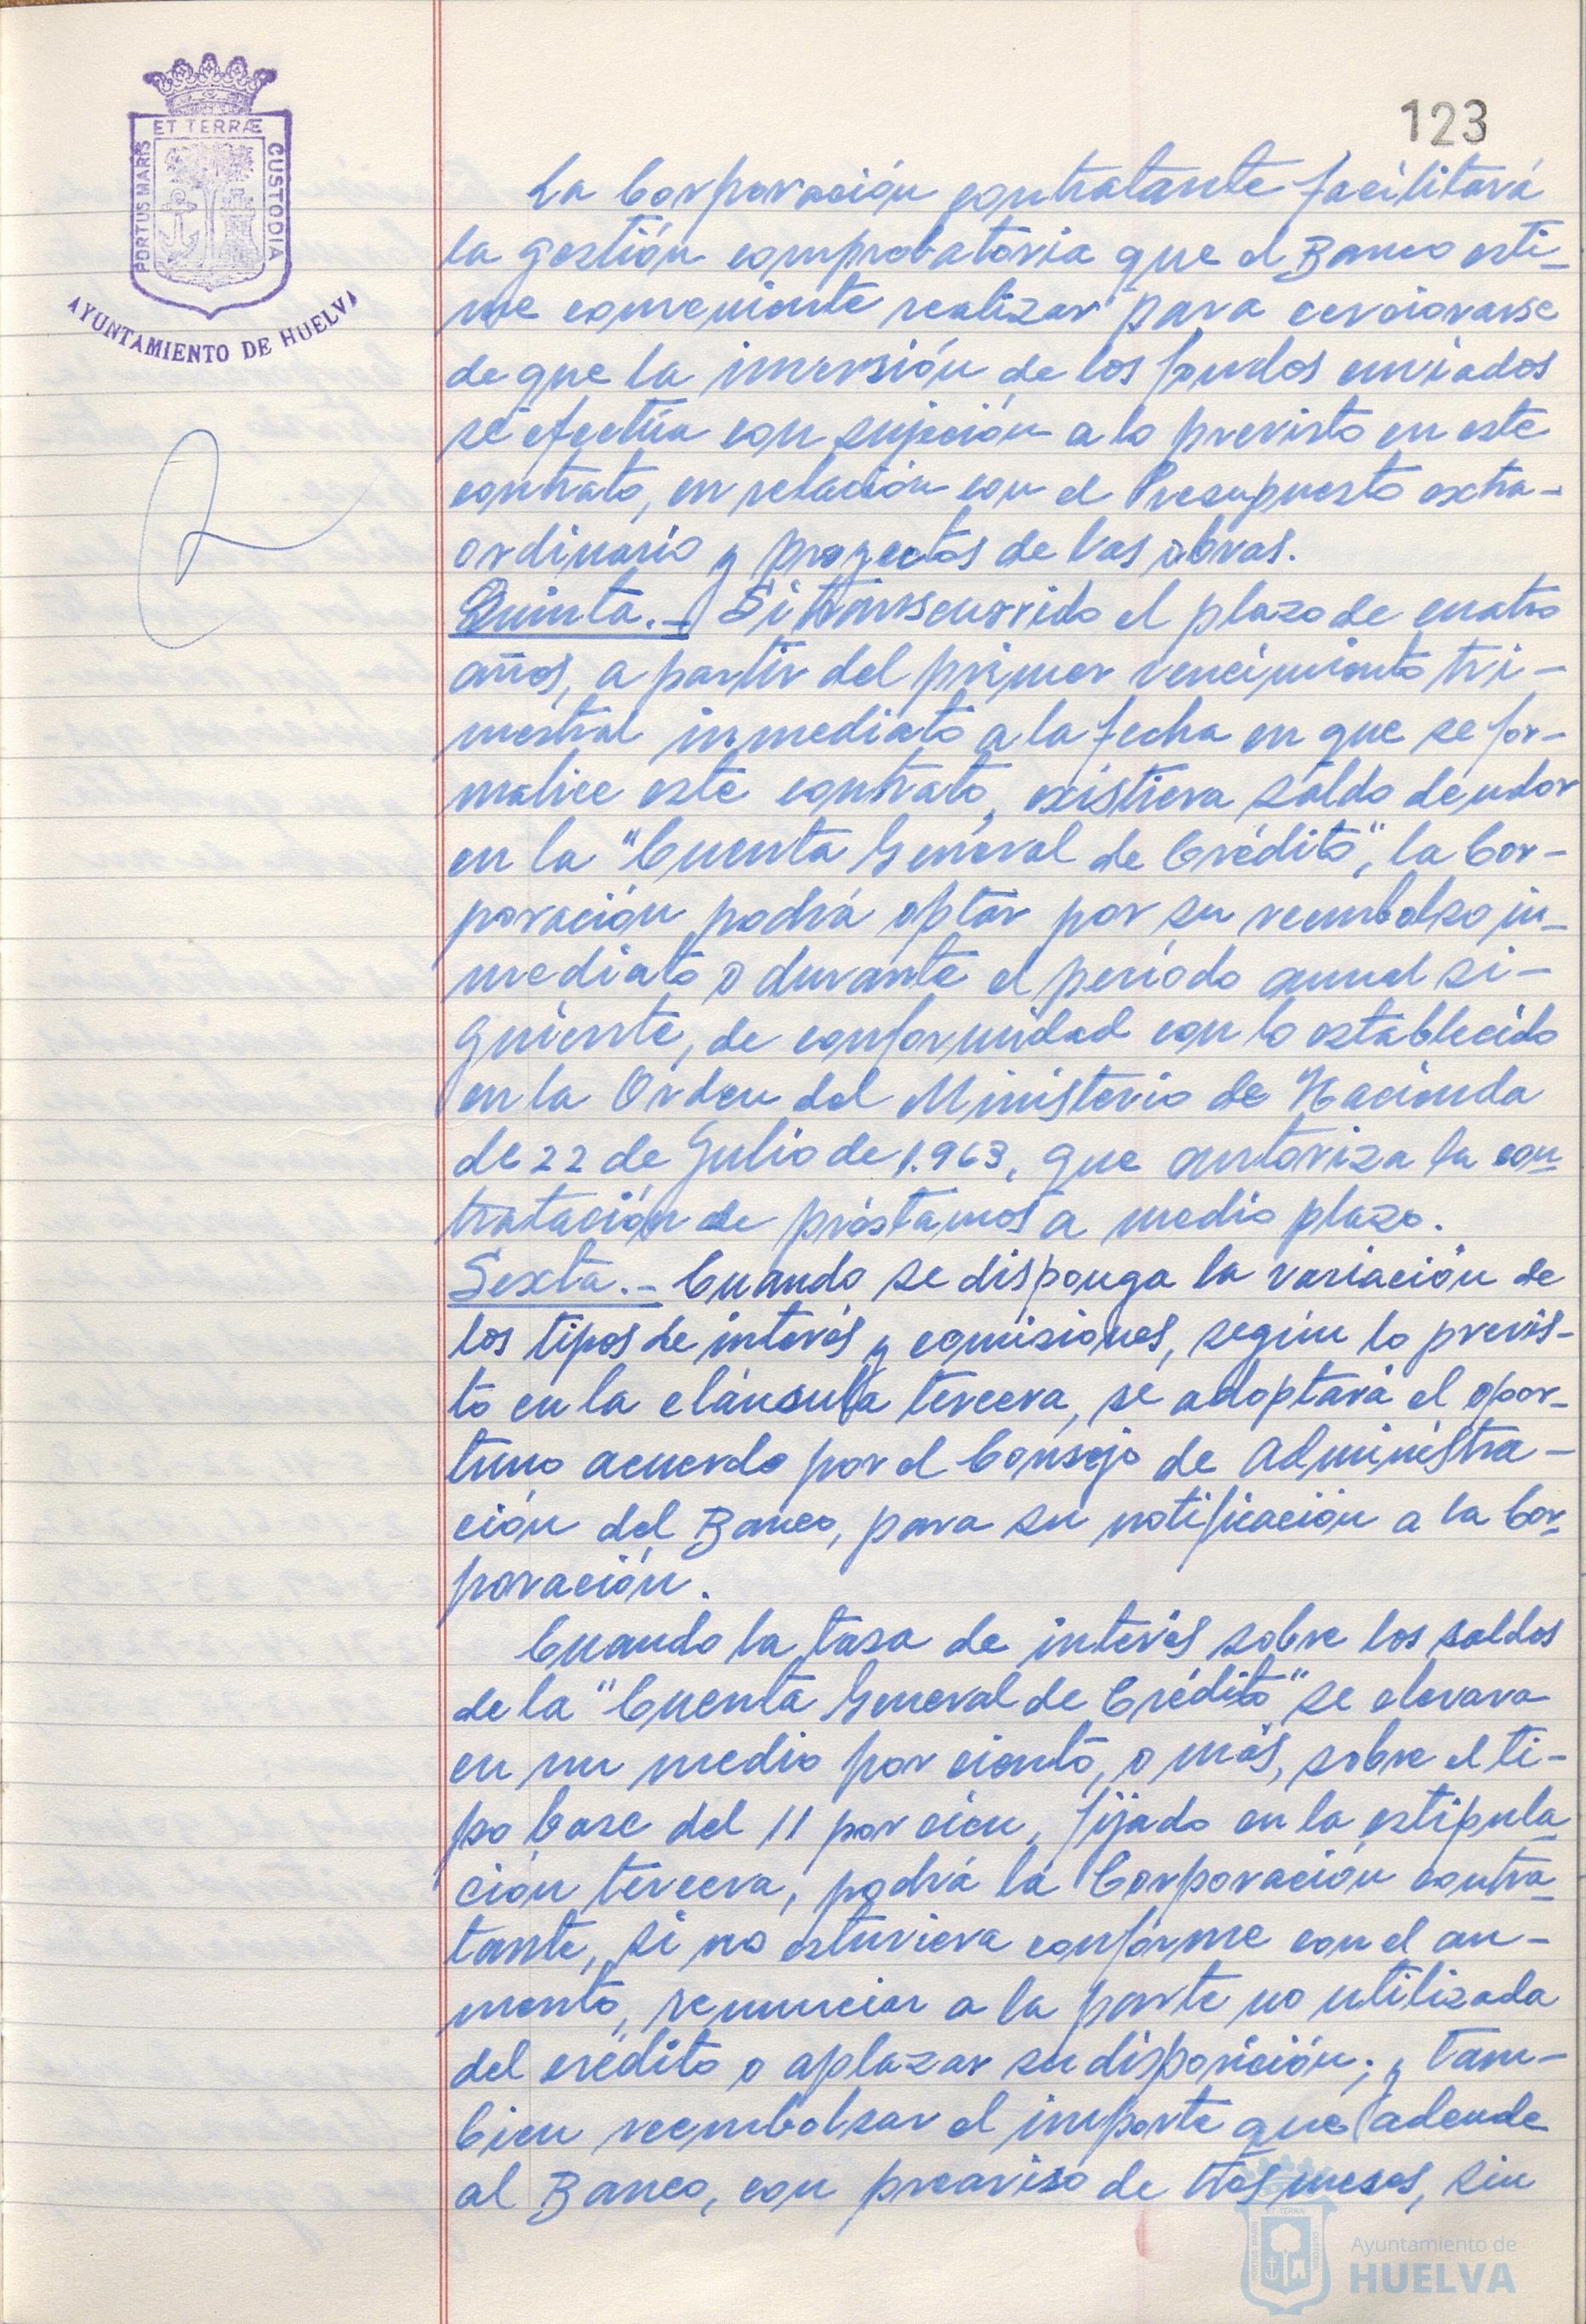 123
ET TERRÆ
PORTUS MARIS
CUSTODIA
AYUNTAMIENTO DE HUELVA
La Corporación contratante facilitará
la gestión comprobatoria que el Banco esti-
me conveniente realizar para cerciorarse
de que la inversión de los fondos enviados
se efectúa con sujeción a lo previsto en este
contrato, en relación con el Presupuesto extra-
ordinario y proyectos de las obras.
Quinta.- Si transcurrido el plazo de cuatro
años, a partir del primer vencimiento tri-
mestral inmediato a la fecha en que se for-
malice este contrato, existiera saldo deudor
en la "Cuenta General de Crédito", la Cor-
poración podrá optar por su reembolso in-
mediato o durante el período anual si-
guiente, de conformidad con lo establecido
en la Orden del Ministerio de Hacienda
de 22 de Julio de 1.963, que autoriza la con-
tratación de préstamos a medio plazo.
Sexta.- Cuando se disponga la variación de
los tipos de interés y comisiones, según lo previs-
to en la cláusula tercera, se adoptará el opor-
tuno acuerdo por el Consejo de Administra-
ción del Banco, para su notificación a la Cor-
poración.
Cuando la tasa de interés sobre los saldos
de la "Cuenta General de Crédito" se elevara
en un medio por ciento, o más, sobre el ti-
po base del 11 por cien, fijado en la estipula-
ción tercera, podrá la Corporación contra-
tante, si no estuviera conforme con el au-
mento, renunciar a la parte no utilizada
del crédito o aplazar su disposición; y tam-
bien reembolsar el importe que adeude
al Banco, con preaviso de tres meses, sin
Ayuntamiento de
HUELVA